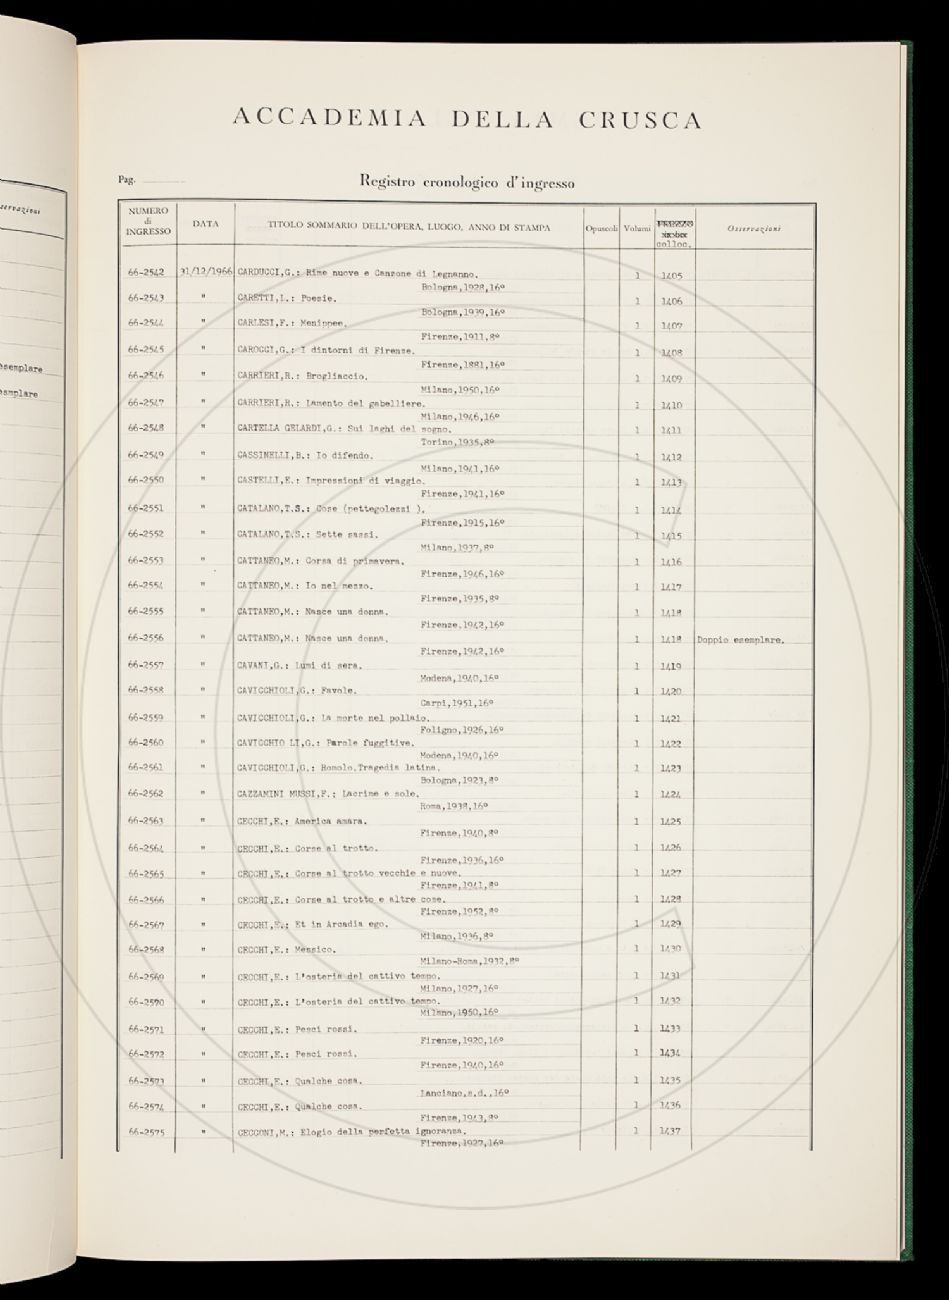 servazioni
esemplare
esemplare
ACCADEMIA DELLA CRUSCA
Pag.
Registro cronologico d'ingresso
NUMERO di INGRESSO DATA TITOLO SOMMARIO DELL'OPERA, LUOGO, ANNO DI STAMPA Opuscoli Volumi PREZZO colloc. Osservazioni
66-2542 31/12/1966 CARDUCCI,G.: Rime nuove e Canzone di Legnanno. 1 1405
Bologna,1928,16º
66-2543 " CARETTI,L.: Poesie. 1 1406
Bologna,1939,16º
66-2544 " CARLESI,F.: Menippee. 1 1407
Firenze,1911,8º
66-2545 " CAROCCI,G.: I dintorni di Firenze. 1 1408
Firenze,1881,16º
66-2546 " CARRIERI,R.: Brogliaccio. 1 1409
Milano,1950,16º
66-2547 " CARRIERI,R.: Lamento del gabelliere. 1 1410
Milano,1946,16º
66-2548 " CARTELLA GELARDI,G.: Sui laghi del sogno. 1 1411
Torino,1935,8º
66-2549 " CASSINELLI,B.: Io difendo. 1 1412
Milano,1941,16º
66-2550 " CASTELLI,E.: Impressioni di viaggio. 1 1413
Firenze,1941,16º
66-2551 " CATALANO,T.S.: Cose (pettegolezzi ). 1 1414
Firenze,1915,16º
66-2552 " CATALANO,T.S.: Sette sassi. 1 1415
Milano,1937,8º
66-2553 " CATTANEO,M.: Corsa di primavera. 1 1416
Firenze,1946,16º
66-2554 " CATTANEO,M.: Io nel mezzo. 1 1417
Firenze,1935,8º
66-2555 " CATTANEO,M.: Nasce una donna. 1 1418
Firenze,1942,16º
66-2556 " CATTANEO,M.: Nasce una donna. 1 1418 Doppio esemplare.
Firenze,1942,16º
66-2557 " CAVANI,G.: Lumi di sera. 1 1419
Modena,1940,16º
66-2558 " CAVICCHIOLI,G.: Favole. 1 1420
Carpi,1951,16º
66-2559 " CAVICCHIOLI,G.: La morte nel pollaio. 1 1421
Foligno,1926,16º
66-2560 " CAVICCHIO LI,G.: Parole fuggitive. 1 1422
Modena,1940,16º
66-2561 " CAVICCHIOLI,G.: Romolo.Tragedia latina. 1 1423
Bologna,1923,8º
66-2562 " CAZZAMINI MUSSI,F.: Lacrime e sole. 1 1424
Roma,1938,16º
66-2563 " CECCHI,E.: America amara. 1 1425
Firenze,1940,8º
66-2564 " CECCHI,E.: Corse al trotto. 1 1426
Firenze,1936,16º
66-2565 " CECCHI,E.: Corse al trotto vecchie e nuove. 1 1427
Firenze,1941,8º
66-2566 " CECCHI,E.: Corse al trotto e altre cose. 1 1428
Firenze,1952,8º
66-2567 " CECCHI,E.: Et in Arcadia ego. 1 1429
Milano,1936,8º
66-2568 " CECCHI,E.: Messico. 1 1430
Milano-Roma,1932,8º
66-2569 " CECCHI,E.: L'osteria del cattivo tempo. 1 1431
Milano,1927,16º
66-2570 " CECCHI,E.: L'osteria del cattivo tempo. 1 1432
Milano,1950,16º
66-2571 " CECCHI,E.: Pesci rossi. 1 1433
Firenze,1920,16º
66-2572 " CECCHI,E.: Pesci rossi. 1 1434
Firenze,1940,16º
66-2573 " CECCHI,E.: Qualche cosa. 1 1435
Lanciano,s.d.,16º
66-2574 " CECCHI,E.: Qualche cosa. 1 1436
Firenze,1943,8º
66-2575 " CECCONI,M.: Elogio della perfetta ignoranza. 1 1437
Firenze,1927,16º